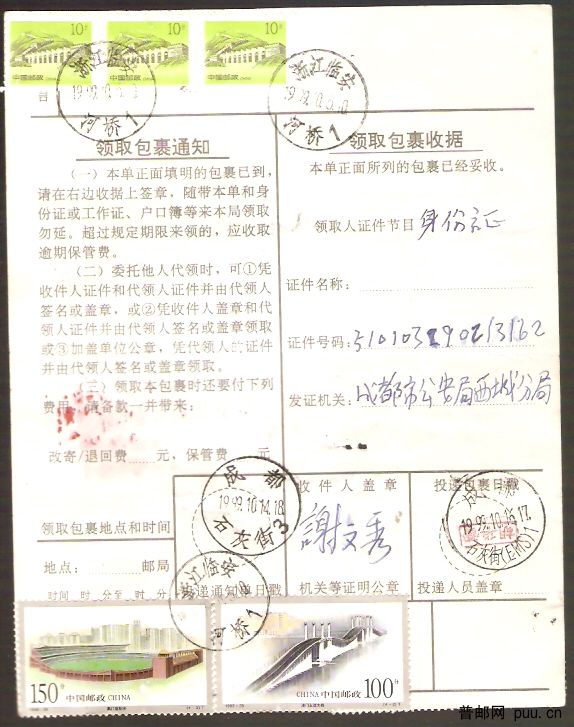 10分
10分
10分
中国邮政 CHINA
中国邮政 CHINA
中国邮政 CHINA
浙江临安
河桥1
浙江临安
1999.10.
河桥1
领取包裹通知
(一)本单正面填明的包裹已到,
请在右边收据上签章,随带本单和身
份证或工作证、户口簿等来本局领取
勿延。超过规定期限来领的,应收取
逾期保管费。
(二)委托他人代领时,可①凭
收件人证件和代领人证件并由代领人
签名或盖章,或②凭收件人盖章和代
领人证件并由代领人签名或盖章领取
或③加盖单位公章,凭代领人的证件
并由代领人签名或盖章领取。
(三)领取本包裹时还要付下列
费用,请备款一并带来:
改寄/退回费 元,保管费 元
领取包裹收据
本单正面所列的包裹已经妥收。
领取人证件节目 身份证
证件名称:
证件号码:
发证机关:成都市公安局西城分局
领取包裹地点和时间
地点: 邮局
时间 时 分至 时 分
成都
1999.10.14.18
石灰街3
投递通知日戳
浙江临安
河桥1
收件人盖章
謝文秀
机关等证明公章
投递包裹日戳
成都
1999.10.16.17
石灰街(EMS)1
投递人员盖章
150分
中国邮政 CHINA
100分
中国邮政 CHINA
普邮网 puu.cn